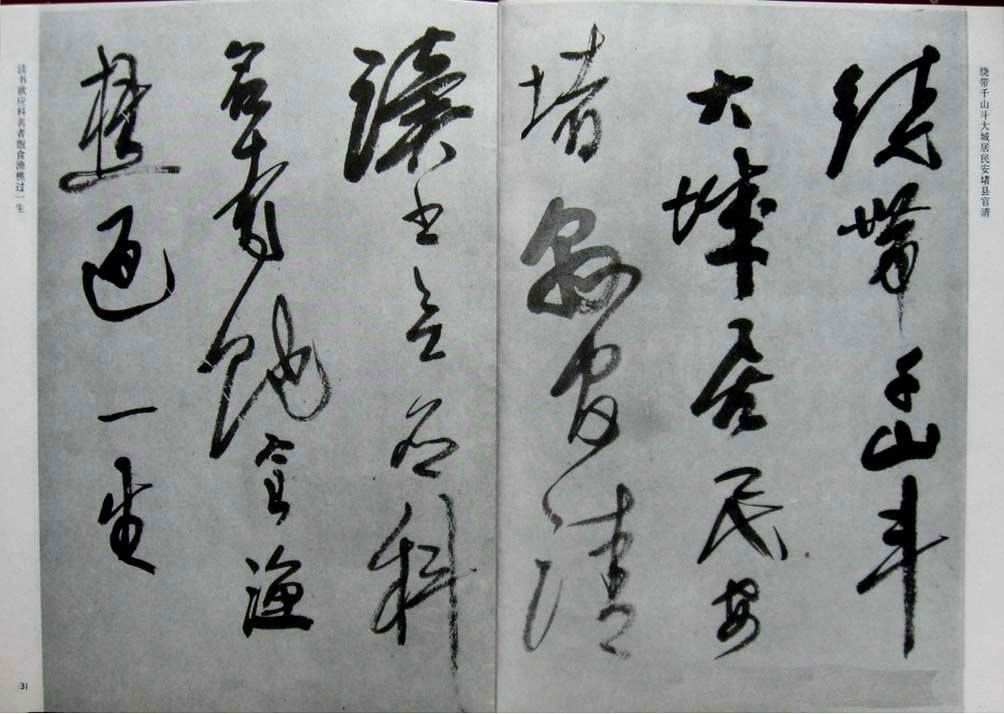 绕带千山斗大城居民安堵县官清
繞帶千山斗
大城居民安
堵縣官清
讀書應科
名者飽食漁
樵過一生
读书应科名者饱食渔樵过一生
31